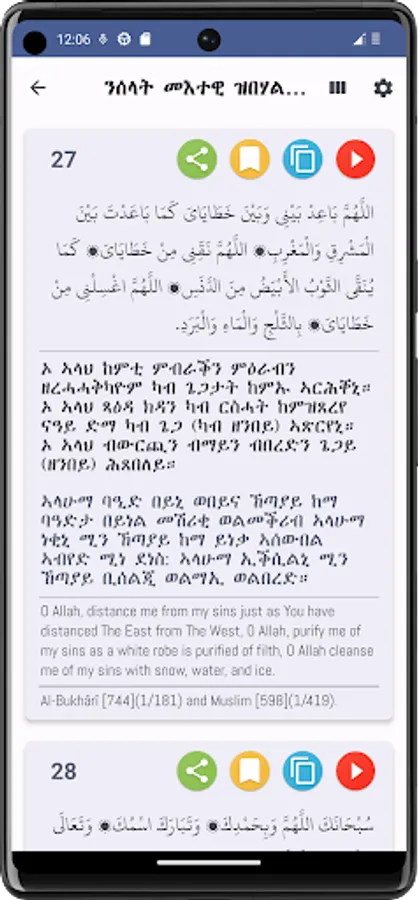 12:06
ንሰላት መእተዊ ዝበሃል...
27
اللَّهُمَّ بَاعِدْ بَيْنِي وَبَيْنَ خَطَايَايَ كَمَا بَاعَدْتَ بَيْنَ
الْمَشْرِقِ وَالْمَغْرِبِ۞ اللَّهُمَّ نَقِّنِي مِنْ خَطَايَايَ۞ كَمَا
يُنَقَّى الثَّوْبُ الأَبْيَضُ مِنَ الدَّنَسِ۞ اللَّهُمَّ اغْسِلْنِي مِنْ
خَطَايَايَ۞ بِالثَّلْجِ وَالْمَاءِ وَالْبَرَدِ.
ኦ ኣላህ ከምቲ ምብራቕን ምዕራብን
ዘረሓሓቅካዮም ካብ ጌጋታት ከምኡ ኣርሕቐኒ።
ኦ ኣላህ ጻዕዳ ክዳን ካብ ርስሓት ከምዝጸረየ
ናዓይ ድማ ካብ ጌጋ (ካብ ዘንበይ) ኣጽርየኒ።
ኦ ኣላህ ብውርጪን ብማይን ብበረድን ጌጋይ
(ዘንበይ) ሕጸበለይ።
ኣላሁማ ባዒድ በይኒ ወበይና ኸጣያይ ከማ
ባዓድታ በይነል መሽሪቂ ወልመቕሪብ ኣላሁማ
ነቂኒ ሚን ኸጣያይ ከማ ይነቃ ኣሰውበል
ኣብየድ ሚነ ደነስ: ኣላሁማ ኢቕሲልኒ ሚን
ኸጣያይ ቢሰልጂ ወልማኢ ወልበረድ።
O Allah, distance me from my sins just as You have
distanced The East from The West, O Allah, purify me of
my sins as a white robe is purified of filth, O Allah cleanse
me of my sins with snow, water, and ice.
Al-Bukhârî [744](1/181) and Muslim [598](1/419).
28
سُبْحَانَكَ اللَّهُمَّ وَبِحَمْدِكَ۞ وَتَبَارَكَ اسْمُكَ۞ وَتَعَالَى